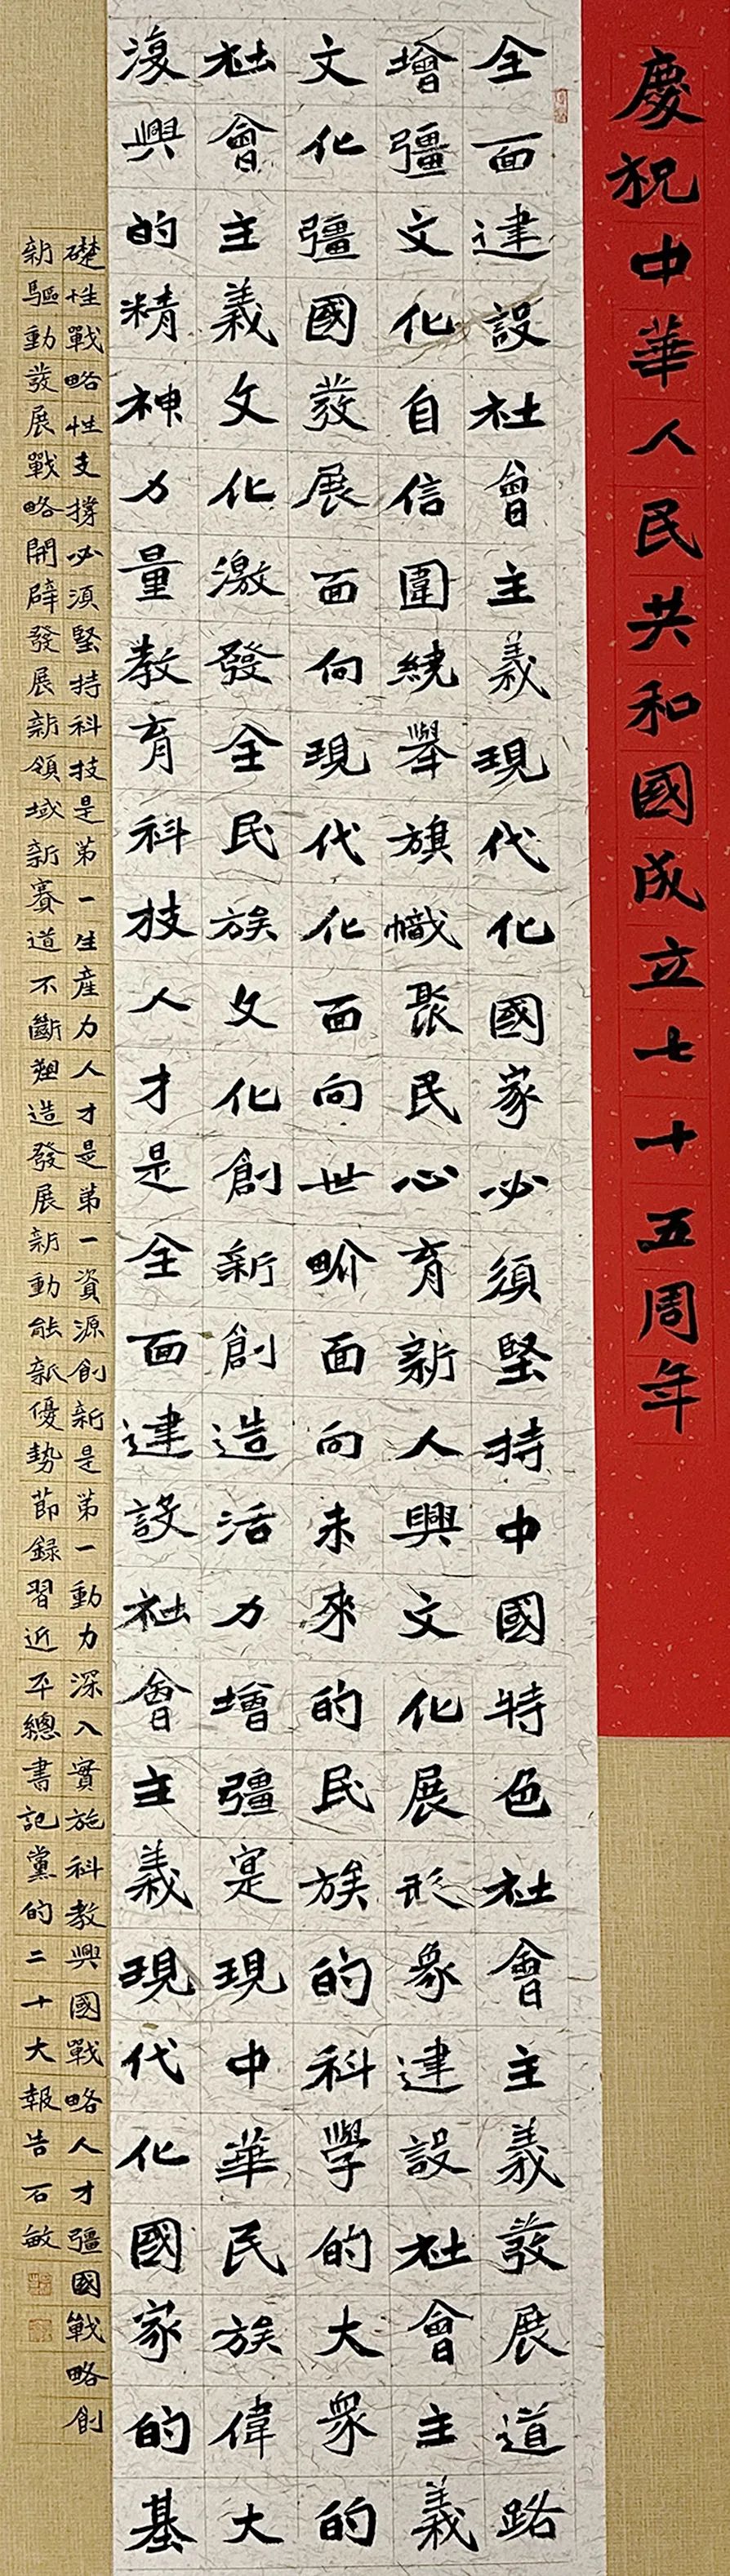 慶祝中華人民共和國成立七十五周年
全面建設社會主義現代化國家必須堅持中國特色社會主義發展道路
增彊文化自信圍繞舉旗幟聚民心育新人興文化展形象建設社會主義
文化彊國發展面向現代化面向世界面向未來的民族的科學的大眾的
社會主義文化激發全民族文化創新創造活力增彊寔現中華民族偉大
復興的精神力量教育科技人才是全面建設社會主義現代化國家的基
礎性戰略性支撐必須堅持科技是第一生產力人才是第一資源創新是第一動力深入實施科教興國戰略人才彊國戰略創
新驅動發展戰略開辟發展新領域新賽道不斷塑造發展新動能新優勢節錄習近平總書記黨的二十大報告石敏